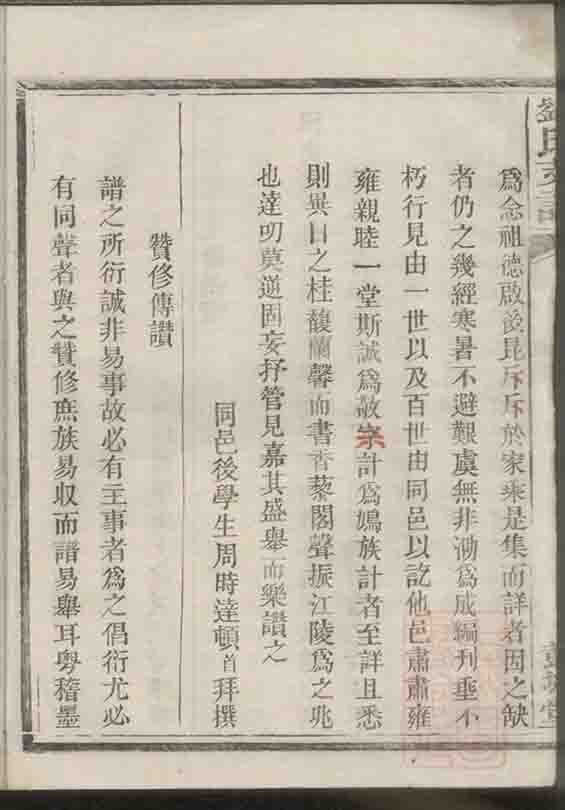 為念祖德啟後昆斤斤於家乘是集而詳者因之缺
者仍之幾經寒暑不避艱虞無非泐為成編刊垂不
朽行見由一世以及百世由同邑以訖他邑肅肅雍
雍親睦一堂斯誠為敬宗計為嫣族計者至詳且悉
則異日之桂馥蘭馨而書香藜閣聲振江陵為之兆
也達叨莫逆固妄抒管見嘉其盛舉而樂讚之
同邑後學生周時達頓首拜撰
贊修傳讚
譜之所衍誠非易事故必有主事者為之倡衍尤必
有同聲者與之贊修庶族易収而譜易舉耳粵稽墨